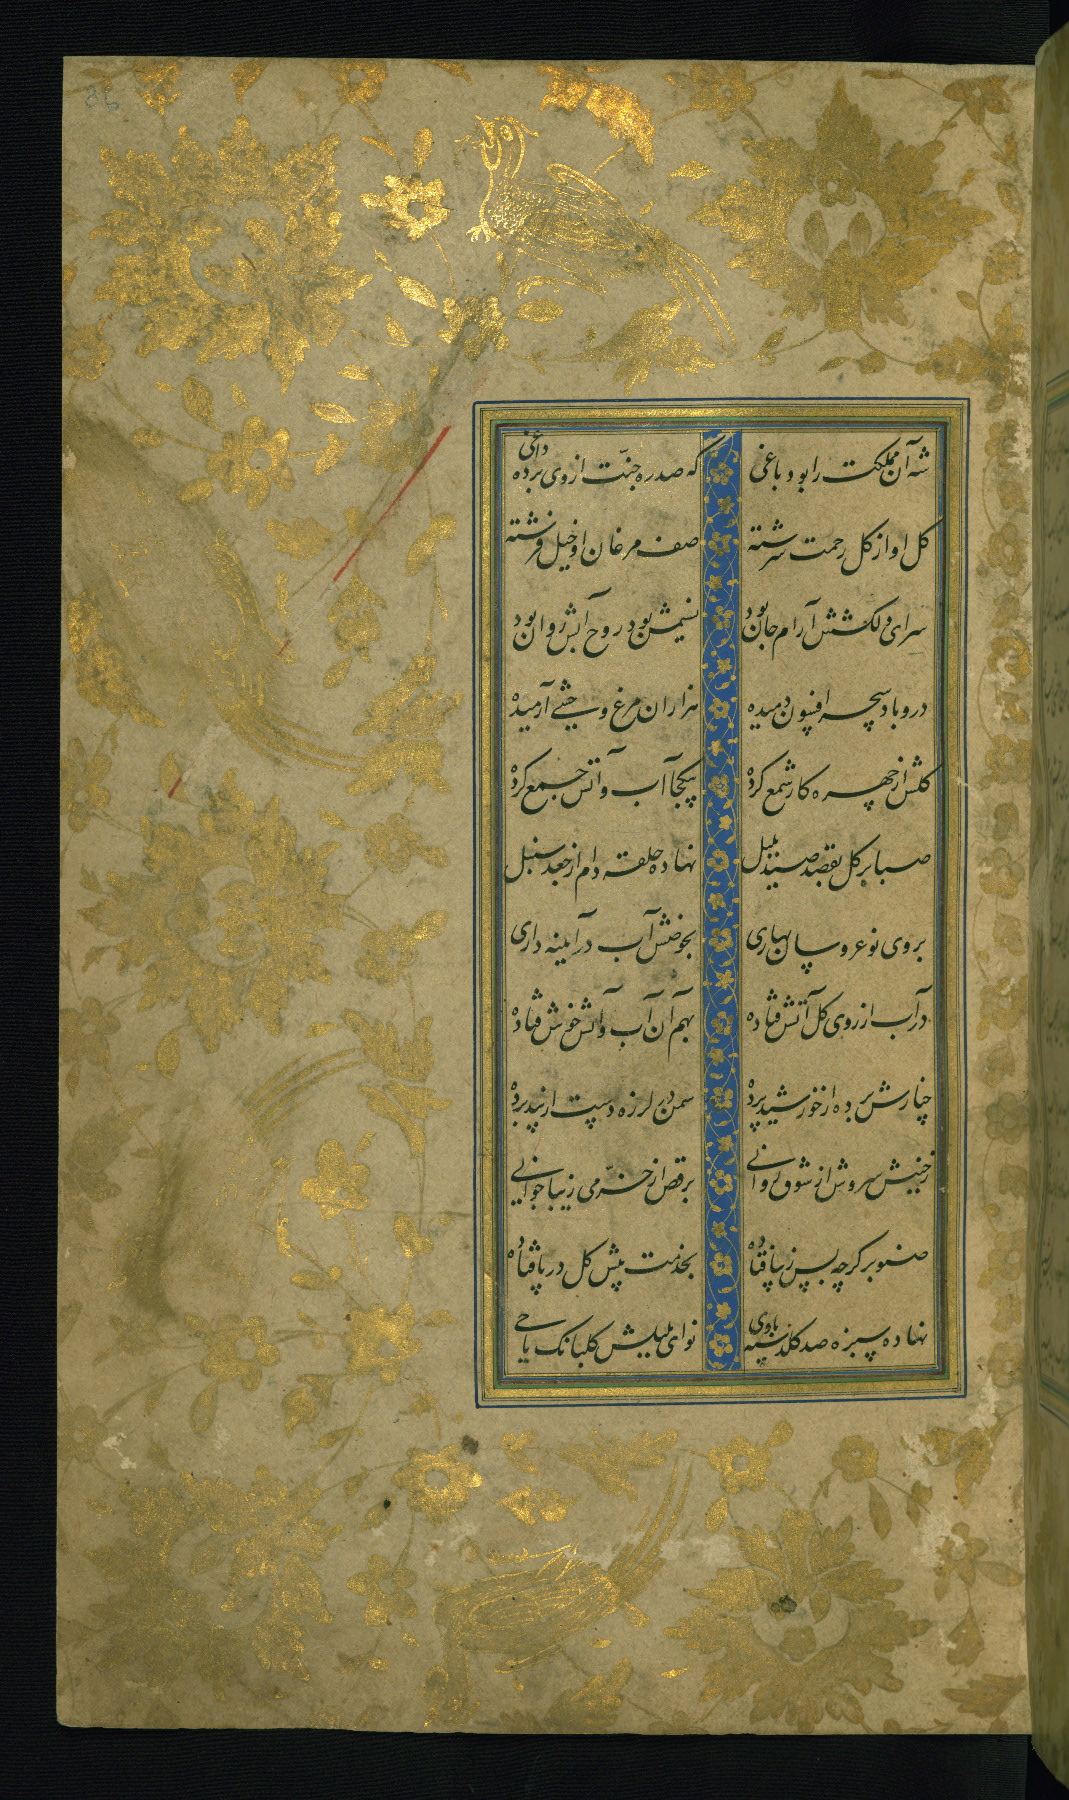 شه آن مملکت را بود باغی که صد ره جنّت از وی برده داغی
کل او از کل رحمت سرشته صف مرغان او خیل فرشته
سرای دلکشش آرام جان بود نسیمش بود روح آبش روان بود
درو باد سحر افسون دمیده هزاران مرغ وحشی آرمیده
کلش از چهره کار شمع کرده بیکجا آب و آتش جمع کرده
صبا بر کل بقصد صید بلبل نهاده حلقه دام از جعد سنبل
بروی نوعروسان بهاری بحوضش آب در آیینه داری
در آب از روی کل آتش فتاده بهم آن آب و آتش خوش فتاده
چنارش برده از خورشید پرده سمن در لرزه دست از بید برده
ز جنبش سروش از شوق روانی برقص از خرّمی زیبا جوانی
صنوبر کرچه بس زیبا فتاده بخدمت پیش کل در پا فتاده
نهاده سبزه صد کلدسته بادی نوای بلبلش کلبانک یاحی